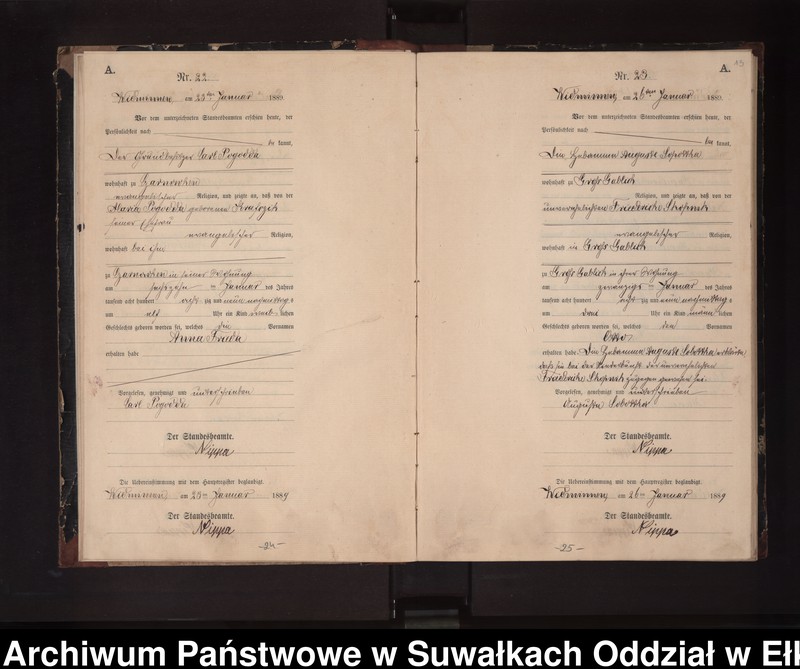 A.
Nr. 22
Widminnen am 25ten Januar 1889.
Vor dem unterzeichneten Standesbeamten erschien heute, der
Persönlichkeit nach
be kannt,
Der Grundbesitzer Carl Pogodda
wohnhaft zu Czarnowken
evangelischer Religion, und zeigte an, daß von der
Maria Pogodda geborenen
seiner Ehefrau
evangelischer Religion,
wohnhaft bei ihm
zu Czarnowken in seiner Wohnung
am sechszehn ten Januar des Jahres
tausend acht hundert acht zig und neun nachmittags
um elf Uhr ein Kind weib lichen
Geschlechts geboren worden sei, welches die Vornamen
Anna Frieda
erhalten habe
Vorgelesen, genehmigt und unterschrieben
Carl Pogodda
Der Standesbeamte.
Nippa
Die Uebereinstimmung mit dem Hauptregister beglaubigt.
Widminnen, am 25ten Januar 1889
Der Standesbeamte.
Nippa
-24-
A.
Nr. 23
Widminnen, am 26ten Januar 1889.
Vor dem unterzeichneten Standesbeamten erschien heute, der
Persönlichkeit nach
be kannt,
Die Hebamme Auguste Sobottka
wohnhaft zu Groß Gablick
Religion, und zeigte an, daß von der
unverehelichten Friederike
evangelischer Religion,
wohnhaft in Groß Gablick
zu Groß Gablick in ihrer Wohnung
am zwanzigs ten Januar des Jahres
tausend acht hundert acht zig und neun nachmittag s
um drei Uhr ein Kind männ lichen
Geschlechts geboren worden sei, welches den Vornamen
Otto
erhalten habe. Die Hebamme Auguste Sobottka erklärte,
daß sie bei der Niederkunft der unverehelichten
Friederike zugegen gewesen sei.
Vorgelesen, genehmigt und unterschrieben
Auguste Sobottka
Der Standesbeamte.
Nippa
Die Uebereinstimmung mit dem Hauptregister beglaubigt.
Widminnen, am 26ten Januar 1889
Der Standesbeamte.
Nippa
-25-
Archiwum Państwowe w Suwałkach Oddział w Eł